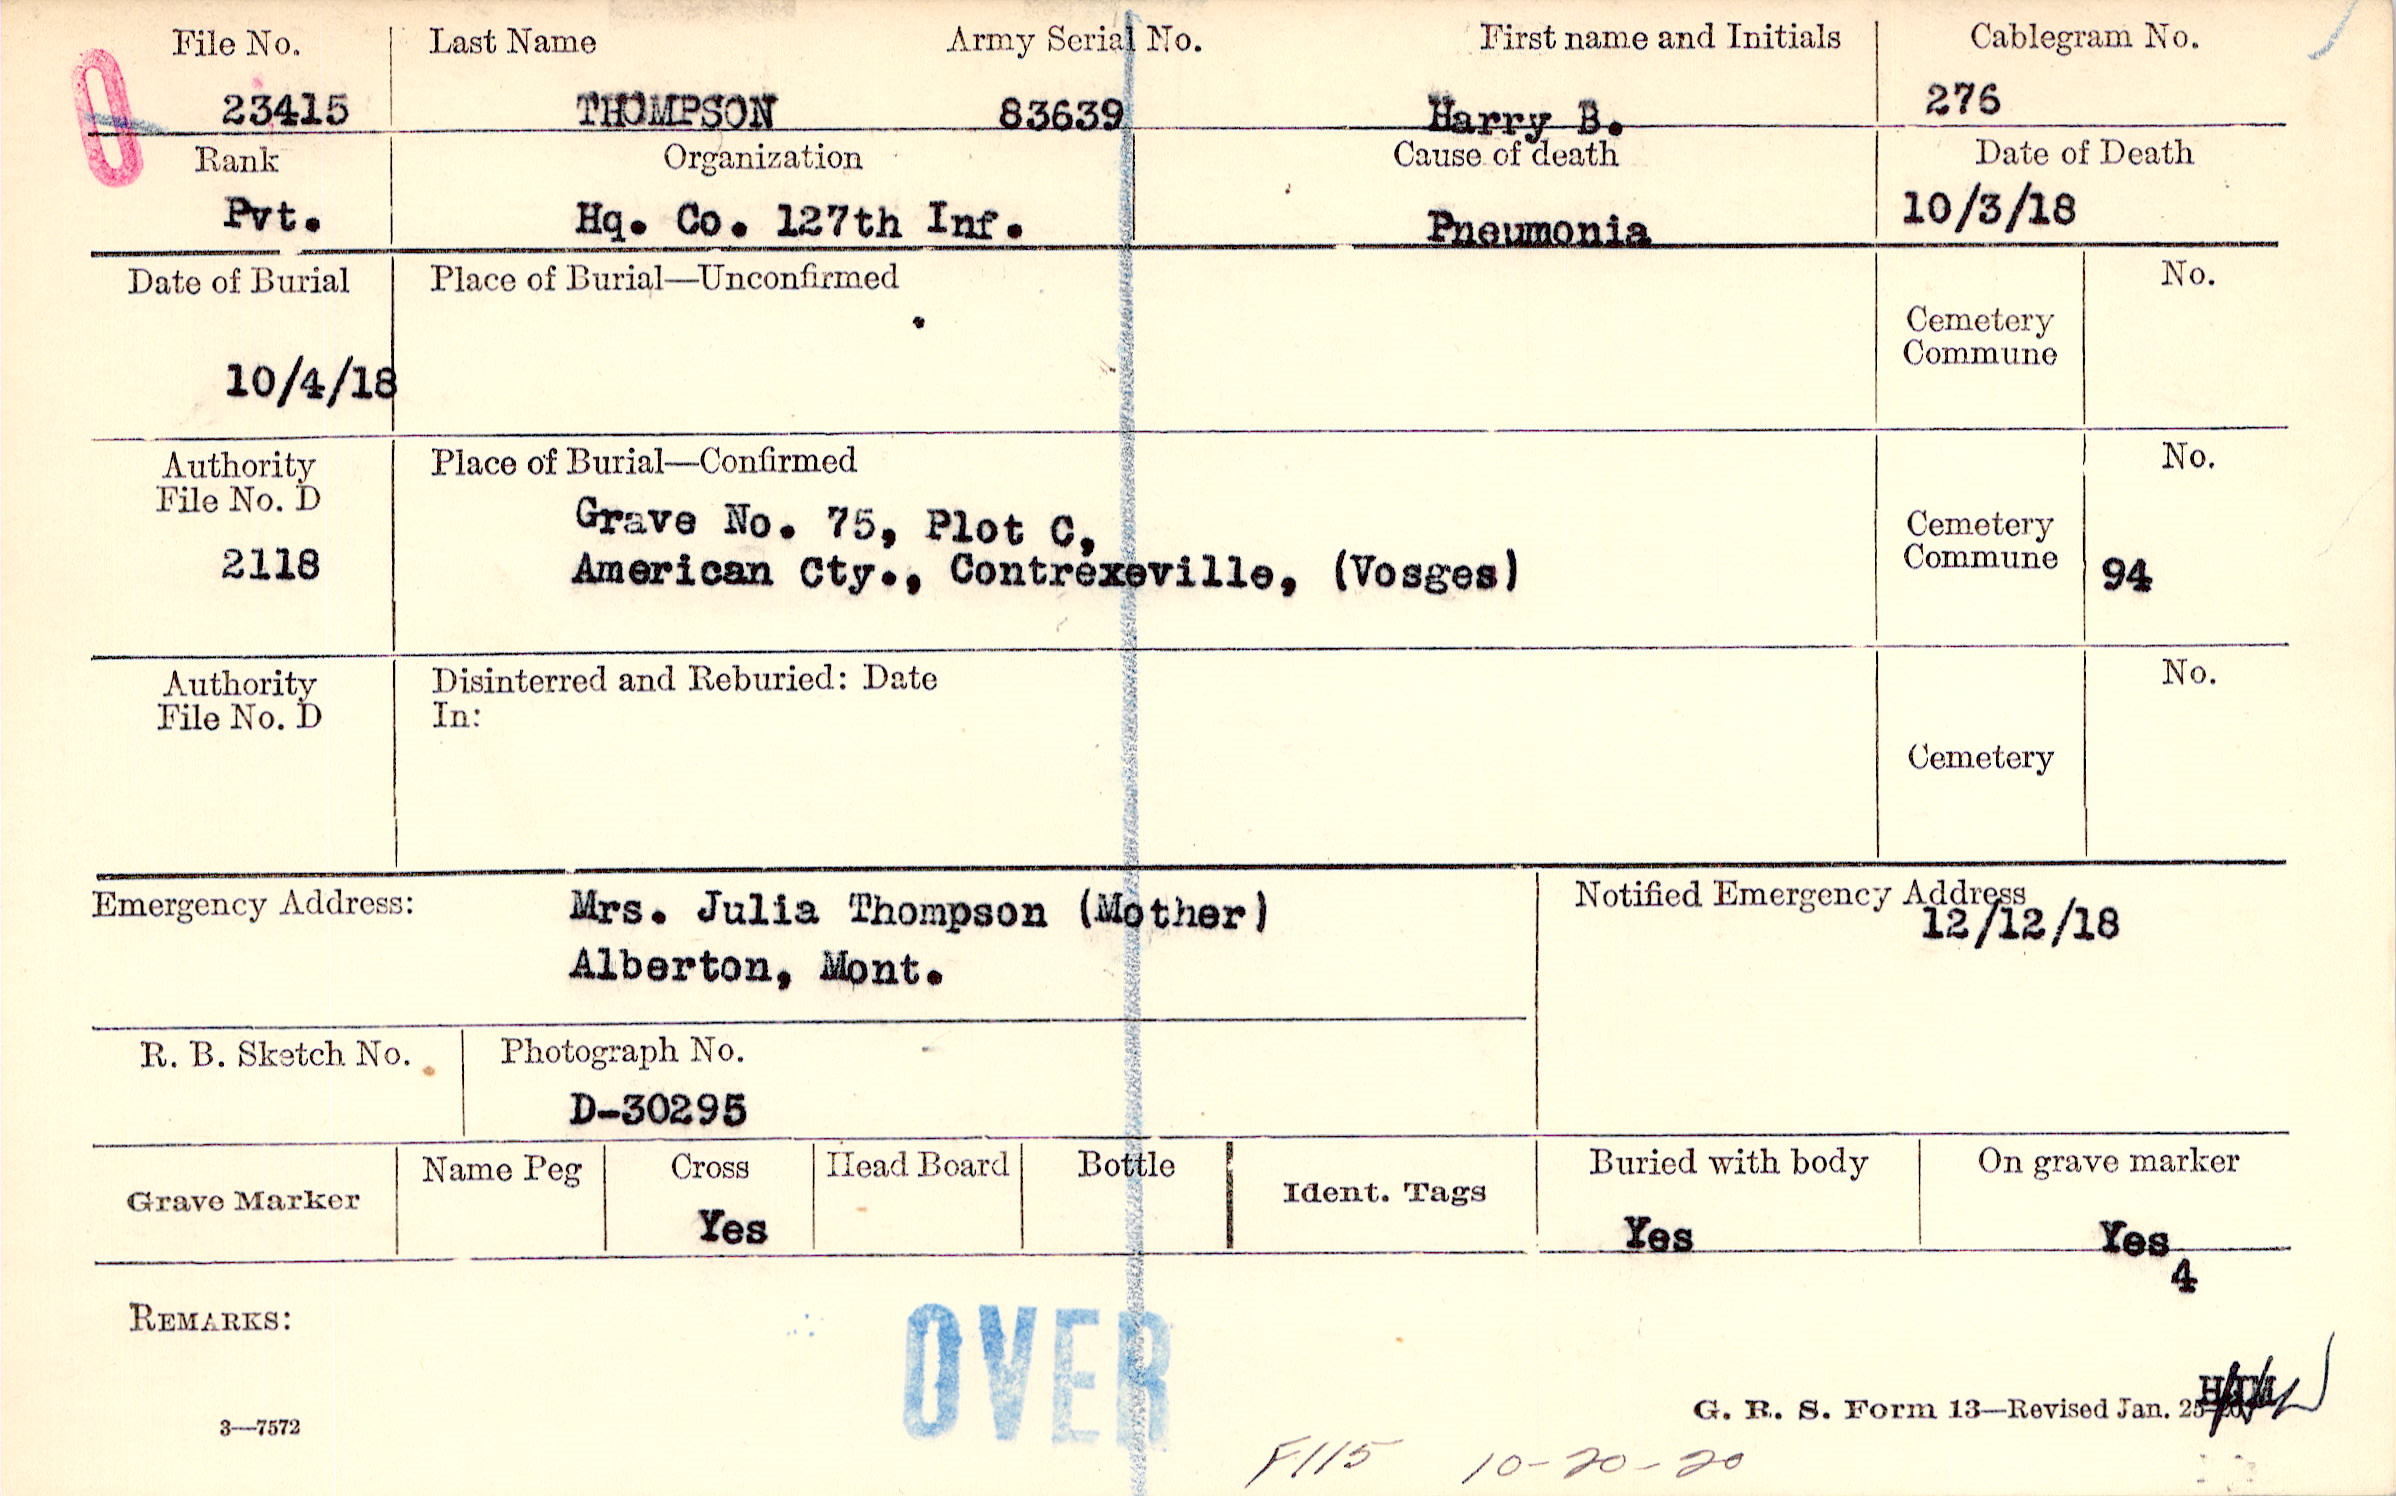 File No. Last Name Army Serial No. First name and Initials Cablegram No.
23415 THOMPSON 83639 Harry B. 276
Rank Organization Cause of death Date of Death
Pvt. Hq. Co. 127th Inf. Pneumonia 10/3/18
Date of Burial Place of Burial—Unconfirmed No.
Cemetery
Commune
10/4/18
Authority Place of Burial—Confirmed No.
File No. D
Grave No. 75, Plot C, Cemetery
2118 American Cty., Contrexeville, (Vosges) Commune 94
Authority Disinterred and Reburied: Date No.
File No. D In:
Cemetery
Emergency Address: Mrs. Julia Thompson (Mother) Notified Emergency Address
12/12/18
Alberton, Mont.
R. B. Sketch No. Photograph No.
D-30295
Grave Marker Name Peg Cross Head Board Bottle Ident. Tags Buried with body On grave marker
Yes Yes Yes
4
REMARKS:
OVER
3—7572 G. R. S. Form 13—Revised Jan. 25
F115 10-20-20